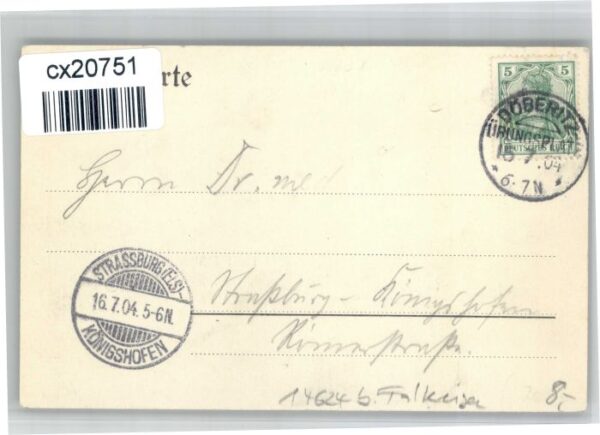 cx20751
rte
5 5
DÖBERITZ
ÜBUNGSPL
DEUTSCHES REICH
7.04
6-7N
Herrn Dr. med
STRASSBURG (ELS)-
16.7.04.5-6N.
KÖNIGSHOFEN
Straßburg - Königshofen
Römerstraße.
14624 b. Falkensee
8,-